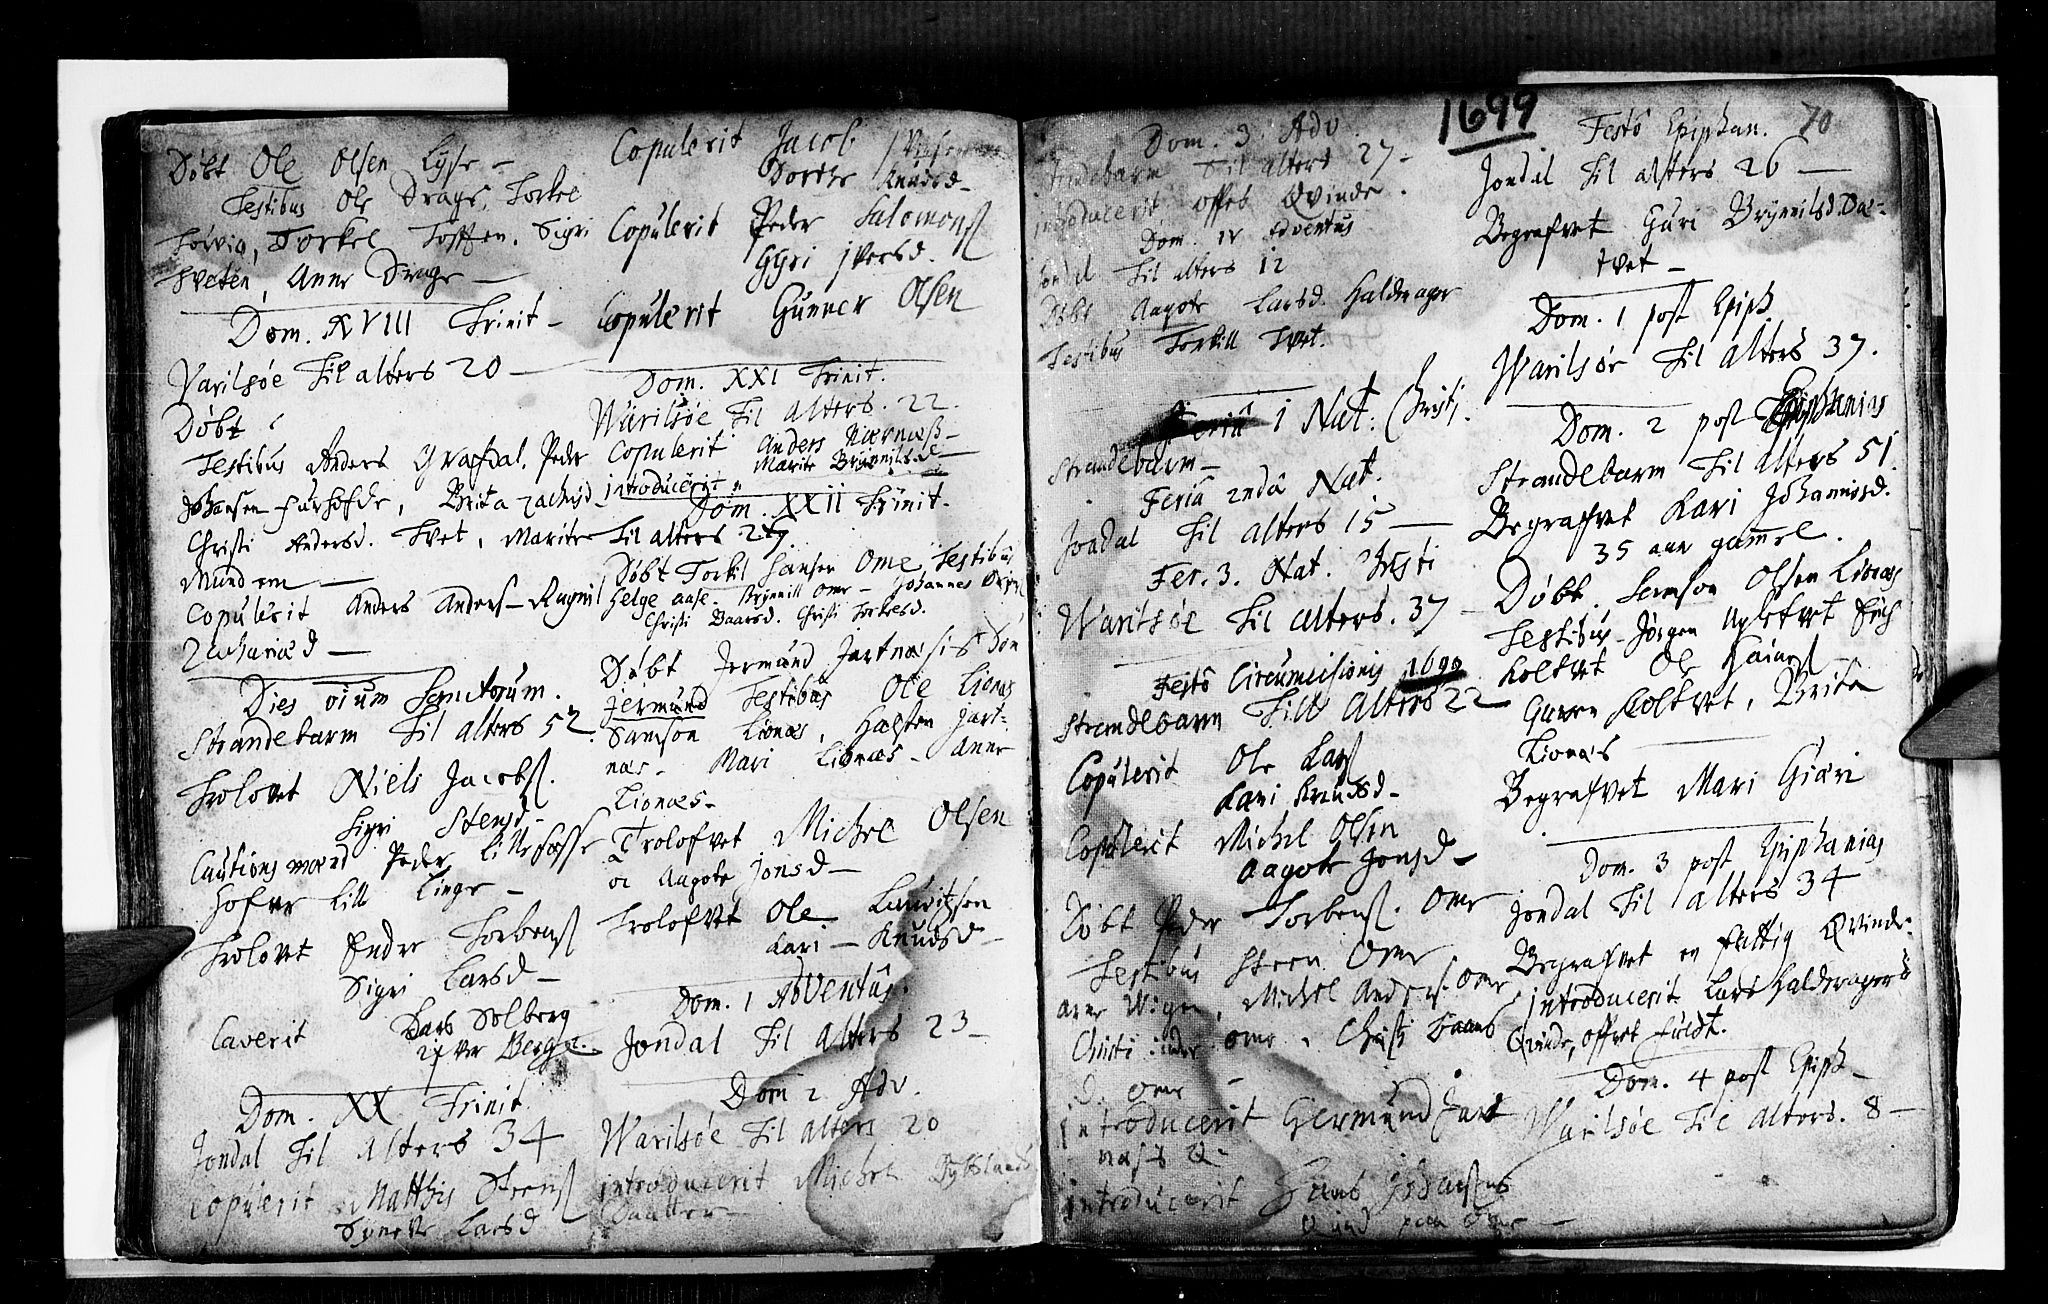 Døbt Ole Olsen Lysse -
Testibus Ole Drags, Torkel
Torvig, Torkel Toffen. Sigri
Tveten, Anne Drags -
Dom. XVIII Trinit -
Varilsøe Til alters 20 -
Døbt
Testibus Anders Grafdal, Peder
Johansen, Brita
Christi Andersd. Tvet, Marite
Mundem -
Copulerit Anders Anders - Ragnil
Zachariæd -
Dies oium Sanctorum.
Strandebarm Til alters 52
Trolovet Niels Jacobss.
Sigri Stensd.
Cautions mænd Peder Lillefosse
Lille Linge -
Trolovet Endre Torbenss
Sigri Larsd -
Caverit Lars Solberg
Berge
Dom. XX Trinit
Jondal Til Alters 34
Copulerit Matthis Steenss
Syneve Larsd
Copulerit Jacob
Dorthe Knudsd -
Copulerit Peder Salomonss
Gyri Iversd.
Copulerit Gunner Olsen
Dom. XXI Trinit.
Warilsøe Til Alters. 22.
Copulerit Anders Nærnæss -
Marite Brynnilsd -
introducerit
Dom. XXII Trinit.
Til alters
Døbt Torkil Hansen Ome Testibus
Helge Aase. Brynnill Ome - Johannes
Christi Baarsd. Christi Torkelsd.
Døbt Jermund Jartnæs
Jermund Testibus Ole Lionæs
Samson Lionæs, Halsten Jart-
næs - Mari Lionæs - Anne
Lionæs -
Trolofvet Michel Olsen
oc Aagote Jonsd -
Trolofvet Ole Lauritzsen
Kari - Knudsd -
Dom. 1 Adventus.
Jondal Til Alters 23 -
Dom 2 Adv.
Warilsøe Til alters 20
introducerit Michel
Datter -
Dom. 3 Adv
Strandebarm Til alters 27 -
introducerit offet Qvinde.
Dom. IV Adventus
Jondal Til alters 12
Døbt Aagote Larsd. Haldrager
Testibus Torkill Tvet.
Feria 1 Nat. Christi.
Strandebarm -
Feria 2nda Nat.
Jondal Til alters 15 -
Fer. 3. Nat. Christi
Warilsøe Til alters. 37 -
Festo Circumcisionis 1699
Strandebarm Till Alters 22
Copulerit Ole Larss
Kari Knudsd -
Copulerit Michel Olsen
Aagote Jonsd -
Døbt Peder Torbenss. Ome
Testibus Steen Ome
Arne Wigen, Michel Anders. Ome
Christi Ome, Christi Baars
D. Ome -
Introducerit Germund Jart
næsis Q -
introducerit Hans
Qvind paa Ome -
1699
Festo Epiphan. 70
Jondal Til alters 26 -
Begrafvet Guri Brynnilsd.
tvet -
Dom. 1 post Epiph
Warilsøe Til Alters 37.
Dom. 2 post Epiphanias
Strandebarm Til Alters 51.
Begrafvet Kari Johannisd.
35 aar gammel.
Døbt Samson Olsen Lionæs
Testibus - Jørgen
Koltvet Ole
Koltvet, Brita
Lionæs -
Begrafvet Mari Giæri
Dom. 3 post Epiphanias
Jondal Til alters 34
Begrafvet en fattig Qvinde -
introducerit Lars Haldragers
Qvinde, offret fuldt.
Dom. 4 post Epiph -
Warilsøe Til Alters. 8 -